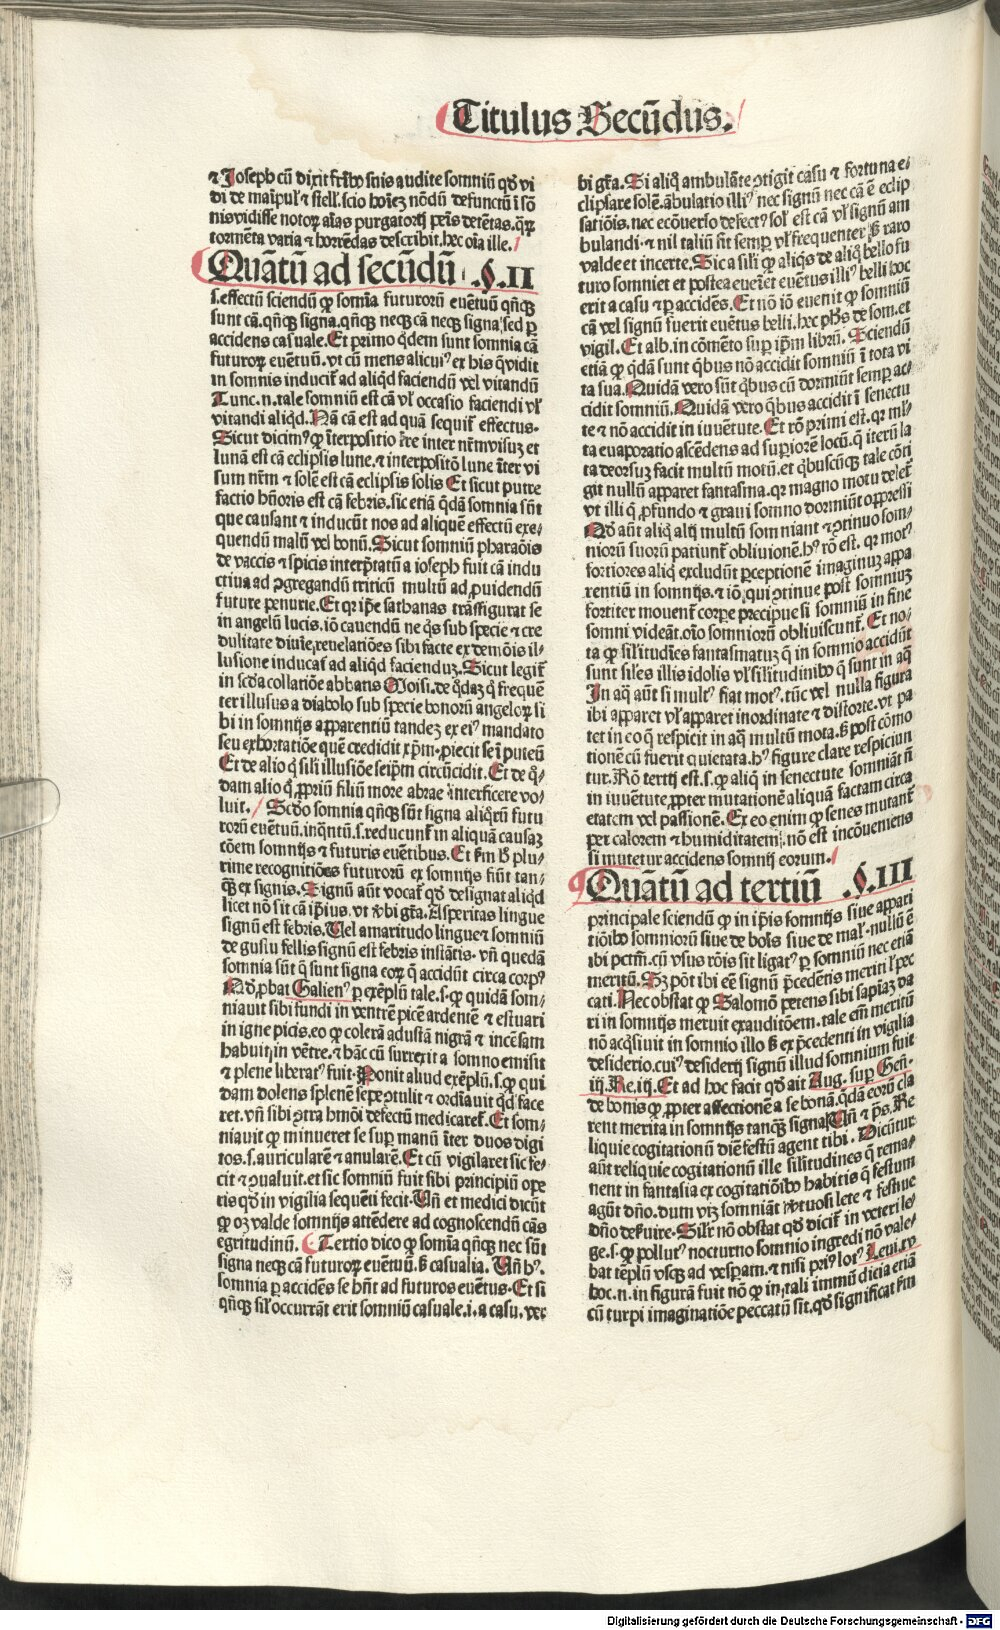 Titulus Secūdus.
⁊ Joseph cū dixit frībꝰ suis audite somniū qd̄ vi
di de maīpulꝭ ⁊ stellꝭ. scio hoīez nōdū defunctū ī sō
nis vidisse notoꝝ aīas purgatorij penis detētas. qꝝ
tormēta varia ⁊ horrēdas describit. hec oīa ille.
Quātū ad secūdū .§.II
s. effectū sciendū ꝙ somīa futurorū euētuū qn̄qꝫ
sunt cā. qn̄qꝫ signa. qn̄qꝫ neqꝫ cā neqꝫ signa, sed ꝑ
accidens casuale. Et primo qdem sunt somnia cā
futuroꝝ euētuū. vt cū mens alicuiꝰ ex his q̄ vidit
in somnis inducit̄ ad aliqd faciendū vel vitandū
Tunc .n. tale somniū est cā vꝉ occasio faciendi vꝉ
vitandi aliqd. Nā cā est ad quā sequit̄ effectus.
Sicut dicimꝰ ꝙ īterpositio t̄re inter nr̄m visuz et
lunā est cā eclipsis lune. ⁊ interpositō lune īter vi
sum nr̄m ⁊ solē est cā eclipsis solis Et sicut putre
factio hūoris est cā febris. sic etiā q̄dā somnia sūt
que causant ⁊ inducūt nos ad aliquē effectū exe-
quendū malū vel bonū. Sicut somniū pharaōis
de vaccis ⁊ spicis interp̄tatū a ioseph fuit cā indu
ctiua ad ꝯgregandū triticū multū ad ꝓuidendū
future penurie. Et qꝛ ip̄e sathanas trāsfigurat se
in angelū lucis. iō cauendū ne q̄s sub specie ⁊ cre
dulitate diuīe, reuelatiōes sibi facte ex demōis il-
lusione inducat̄ ad aliqd facienduz. Sicut legit̄
in scd̄a collatiōe abbatis Moisi. de q̄daz q̄ frequē
ter illusus a diabolo sub specie bonorū angeloꝝ si
bi in somnijs apparentiū tandez ex eiꝰ mandato
seu exhortatiōe quē credidit xp̄m. ꝓiecit se ī puteū
Et de alio q̄ sili illusiōe seip̄m circūcidit. Et de q̄-
dam alio q̄ ꝓpriū filiū more abrae īnterficere vo-
luit. Scd̄o somnia qn̄qꝫ sūt signa aliqrū futu
rorū euētuū. inq̄ntū. s. reducunt̄ in aliquā causaz
cōem somnijs ⁊ futuris euētibus. Et fm b̄ plu-
rime recognitiōes futurorū ex somnijs fiūt tan-
q̄ꝫ ex signis. Signū aūt vocat̄ qd̄ designat aliqd
licet nō sit cā ip̄ius. vt ꝟbi gr̄a. Asperitas lingue
signū est febris. Vel amaritudo lingue ⁊ somniū
de gustu fellis signū est febris instātis. vn̄ quedā
somnia sūt q̄ sunt signa eoꝝ q̄ accidūt circa corpꝰ
Qd̄ ꝓbat Galienꝰ ꝑ exēplū tale. s. ꝙ quidā som-
niauit sibi fundi in ventrē picē ardentē ⁊ estuari
in igne picis. eo ꝙ colerā adustā nigrā ⁊ incēsam
habuit in vētre. ⁊ hāc cū surrexit a somno emisit
⁊ plene liberatꝰ fuit. Ponit aliud exēplū. s. ꝙ qui
dam dolens splenē sepe ꝯtulit ⁊ ordīauit qd̄ face
ret. vn̄ sibi ꝯtra hmōi defectū medicaret̄. Et som-
niauit ꝙ minueret se suꝑ manū īter duos digi
tos. s. auricularē ⁊ anularē. Et cū vigilaret sic fe-
cit ⁊ ꝯualuit. et sic somniū fuit sibi principiū ope
ris qd̄ in vigilia sequēti fecit. Vn̄ et medici dicūt
ꝙ oꝫ valde somnijs attēdere ad cognoscendū cās
egritudinū. Tertio dico ꝙ somīa qn̄qꝫ nec sūt
signa neqꝫ cā futuroꝝ euētuū. s̄ casualia. Vn̄ hꝰ.
somnia ꝑ accidēs se hn̄t ad futuros euētus. Et si
qn̄qꝫ silꝉ occurrāt erit somniū casuale .i. a casu. ver
bi gr̄a. Si aliq̄ ambulāte ꝯtigit casu ⁊ fortuna e-
clipsare solē. ābulatio illiꝰ nec signū nec cā ē eclip
satiōis. nec ecōuerso defectꝰ solꝭ est cā vꝉ signū am
bulandi. ⁊ nil taliū fit semꝑ vꝉ frequenter s̄ raro
valde et incerte. Sic a sili ꝙ aliqs de aliq̄ bello fu
turo somniet et postea eueīet euētus illiꝰ belli hoc
erit a casu ⁊ ꝑ accidēs. Et nō iō euenit ꝙ somniū
cā vel signū fuerit euētus belli. hec phs de som. et
vigil. Et alb. in cōmēto suꝑ ip̄m librū. Sciendū
etiā ꝙ q̄dā sunt q̄bus nō accidit somniū ī tota vi
ta sua. Quidā vero sūt q̄bus cū dormiūt semꝑ ac
cidit somniū. Quidā vero q̄bus accidit ī senectu
te ⁊ nō accidit in iuuētute. Et rō primi est. qꝛ ml̄
ta euaporatio ascēdens ad suꝑiorē locū. q̄ iterū la
ta deorsuz facit multū motū. et q̄buscūqꝫ tale cōti
git nullū apparet fantasma. qꝛ magno motu delet̄
vt illi q̄ ꝓfundo ⁊ graui somno dormiūt oppressi
Qd̄ aūt aliq̄ alij multū somniant ⁊ ꝯtinuo som-
niorū suorū patiunt̄ obliuionē. hꝰ rō est. qꝛ motꝰ
fortiores aliq̄ excludūt ꝑceptionē imaginuz appa
rentiū in somnijs. ⁊ iō qui ꝯtinue post somnuz
fortiter mouent̄ corpe precipue si somniū in fine
somni videāt. oīo somniorū obliuiscunt̄. Et no-
ta ꝙ silitudīes fantasmatuz q̄ in somnio accidūt
sunt siles illis idolis vꝉ silitudinibꝰ q̄ sunt in aq̄
In aq̄ aūt si multꝰ fiat motꝰ. tūc vel nulla figura
ibi apparet vꝉ apparet inordinate ⁊ distorte. vt pa
tet in eo q̄ respicit in aq̄ multū mota. s̄ post cōmo
tionē cū fuerit quietata. hꝰ figure clare respiciun
tur. Rō tertij est. s. ꝙ aliq̄ in senectute somniāt n̄
in iuuētute, ꝓpter mutationē aliquā factam circa
etatem vel passionē. Ex eo enim ꝙ senes mutant̄
ꝑer calorem ⁊ humiditatem, nō est incōueniens
si mutetur accidens somnij eorum.
Quātū ad tertiū .§.III
principale sciendū ꝙ in ip̄is somnijs siue appari
tiōibꝰ somniorū siue de bōis siue de malꝭ. nullū ē
ibi pctm̄. cū vsus rōis sit ligatꝰ ꝑ somniū nec etiā
meritū. Sꝫ pōt ibi eē signū p̄cedētis meriti ꝉ pec
cati. Nec obstat ꝙ Salomō petens sibi sapīaz da
ri in somnijs meruit exauditōem. tale em̄ meritū
nō acq̄siuit in somnio illo s̄ ex p̄cedenti in vigilia
desiderio. cuiꝰ desiderij signū illud somnium fuit
iij. Re. iij. Et ad hoc facit qd̄ ait Aug. suꝑ Gen̄.
de bonis ꝙ ꝓpter affectionē a se bonā. q̄dā eorū cla
rent merita in somnijs tanq̄ꝫ signa, Vn̄ ⁊ ps. Re
liquie cogitationū diē festū agent tibi. Dicūtur
aūt reliquie cogitationū ille silitudines q̄ rema-
nent in fantasia ex cogitatiōibꝰ habitis q̄ festum
agūt dn̄o. dum vtz somniāt ꝟtuosi lete ⁊ festiue
dn̄o deseruire. Silr̄ nō obstat qd̄ dicit̄ in veteri le-
ge. s. ꝙ pollutꝰ nocturno somnio ingredi nō vale-
bat tēplū vsqꝫ ad vesꝑam. ⁊ nisi priꝰ lotꝰ. Leui. xv
hoc .n. in figurā fuit nō ꝙ in, tali immūdicia etiā
cū turpi imaginatiōe peccatū sit. qd̄ significat̄ fm̄
Digitalisierung gefördert durch die Deutsche Forschungsgemeinschaft - DFG